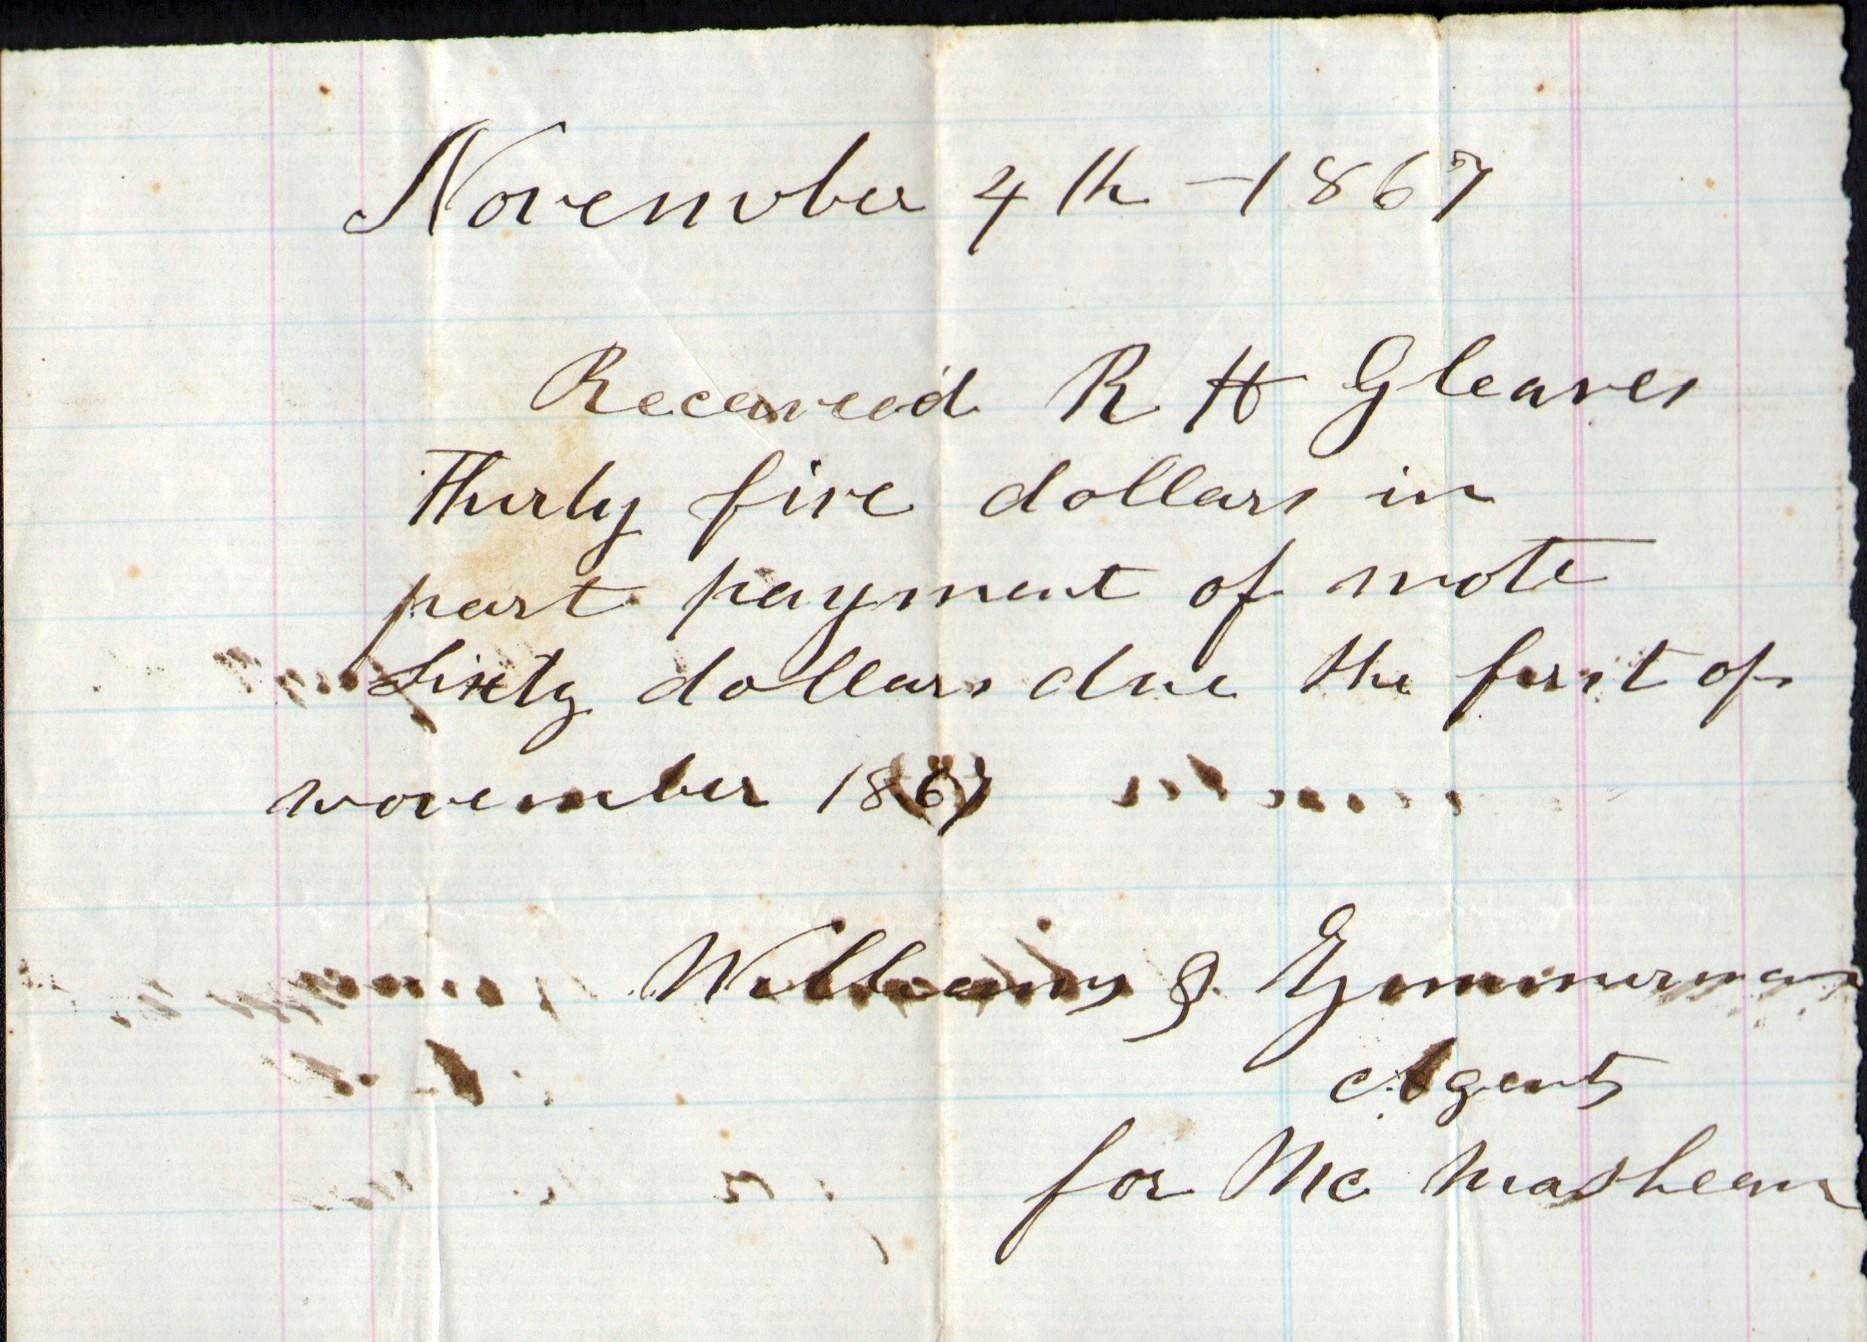 November 4th - 1867
Received R H Gleaves
Thirty five dollars in
part payment of note
Sixty dollars due the first of
november 1867
William
Agent
for Mc